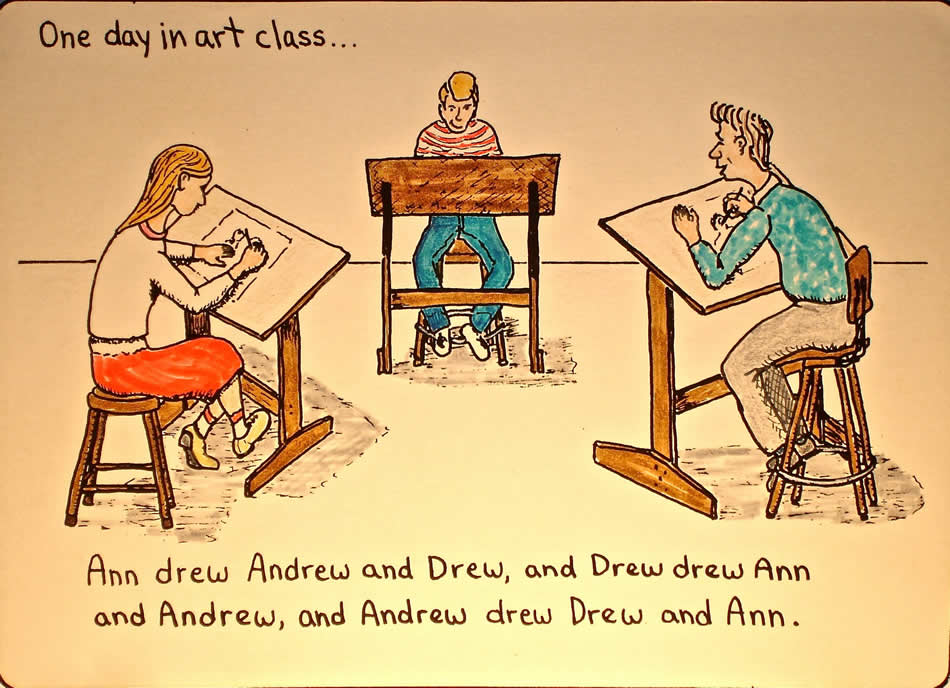 One day in art class...
Ann drew Andrew and Drew, and Drew drew Ann
and Andrew, and Andrew drew Drew and Ann.